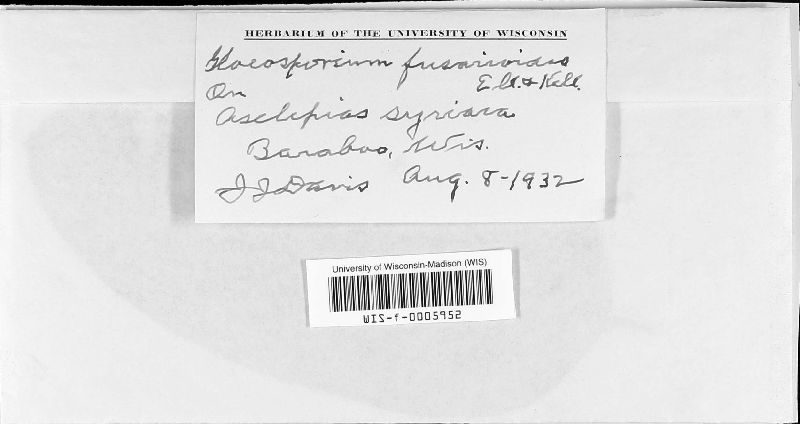 HERBARIUM OF THE UNIVERSITY OF WISCONSIN
Gloeosporium fusarioides
Ell. & Kell.
On
Asclepias syriaca
Baraboo, Wis.
J J Davis Aug. 8-1932
University of Wisconsin-Madison (WIS)
WIS-f-0005952